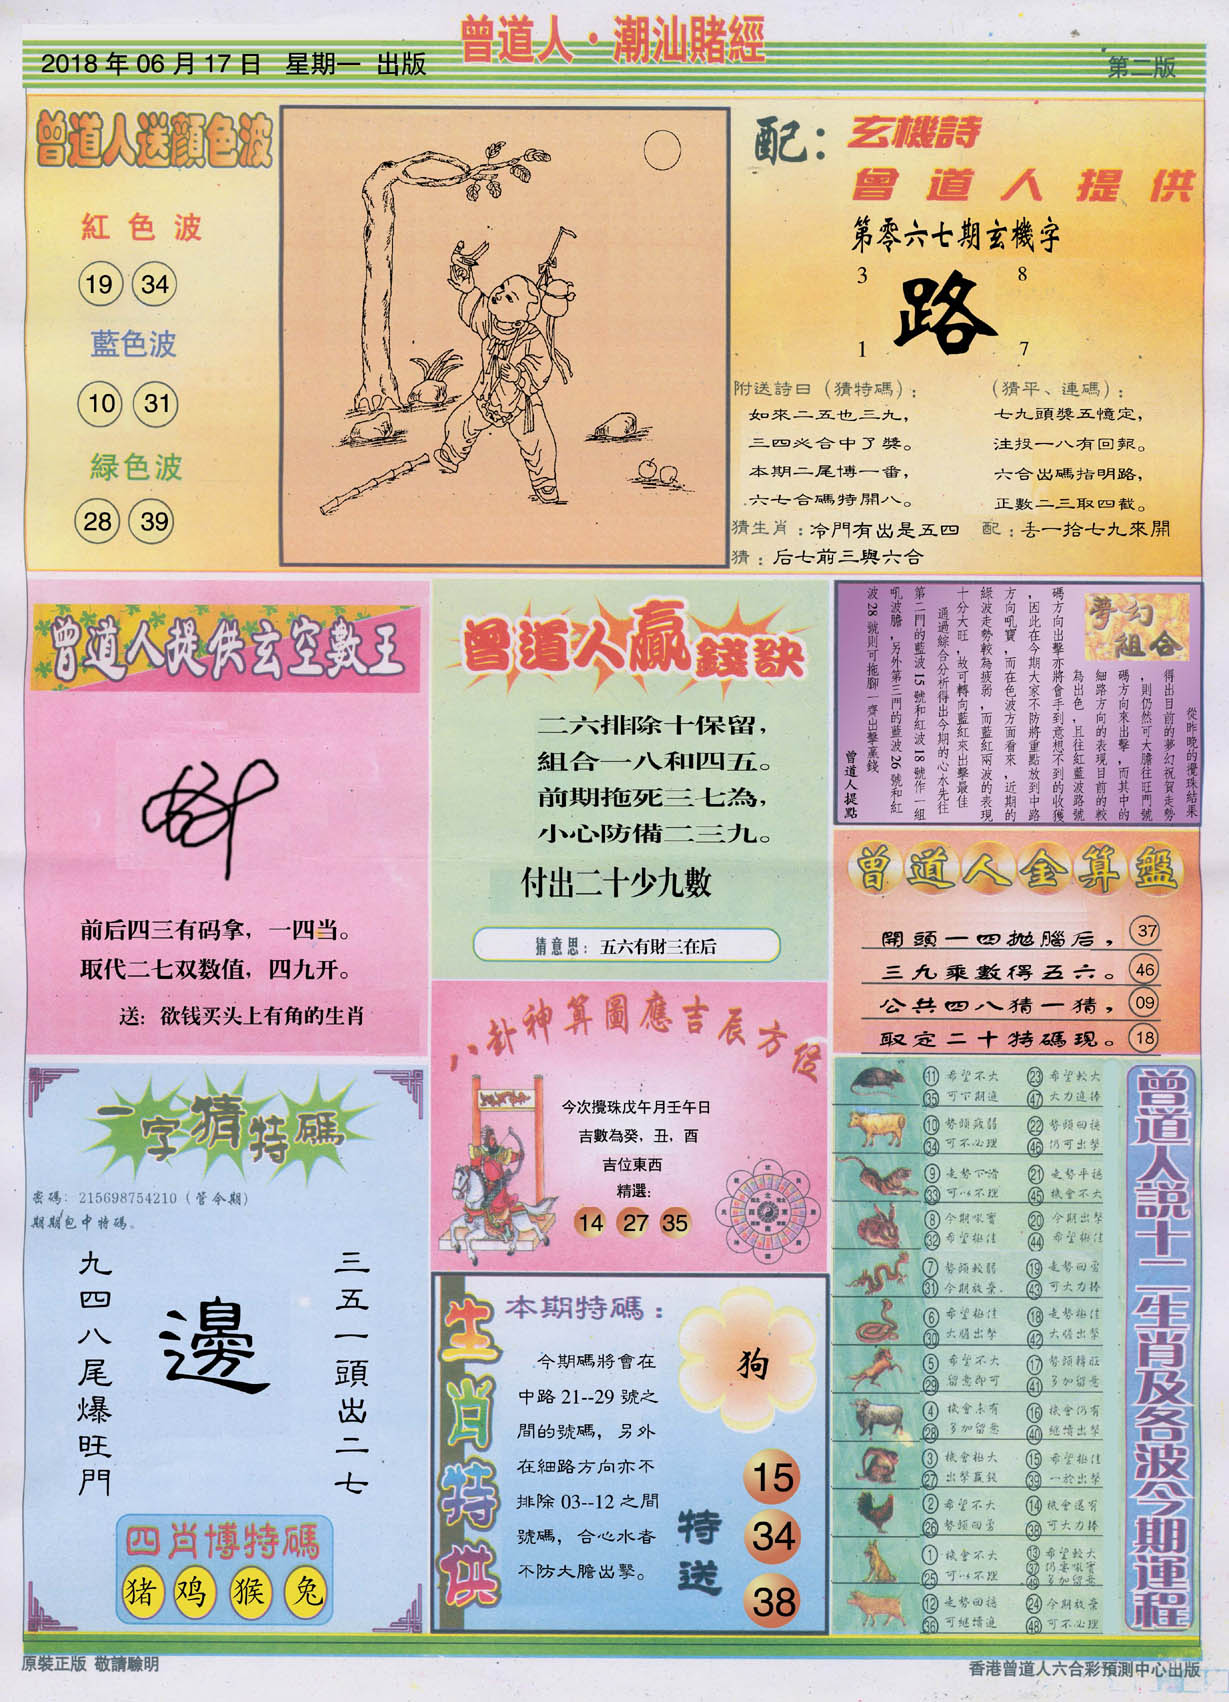 曾道人·潮汕賭經
2018年06月17日 星期一 出版
第二版
曾道人送顔色波
紅色波
19 34
藍色波
10 31
緑色波
28 39
配：玄機詩
曾道人提供
第零六七期玄機字
3 8
路
1 7
附送詩曰（猜特碼）：
如來二五也三九，
三四必合中了獎。
本期二尾博一番，
六七合碼特開八。
（猜平、連碼）：
七九頭獎五憶定，
注投一八有回報。
六合出碼指明路，
正數二三取四截。
猜生肖：冷門有出是五四
配：丢一拾七九來開
猜：后七前三與六合
曾道人提供玄空數王
前后四三有码拿，一四当。
取代二七双数值，四九开。
送：欲钱买头上有角的生肖
曾道人贏錢訣
二六排除十保留，
組合一八和四五。
前期拖死三七為，
小心防備二三九。
付出二十少九數
猜意思：五六有財三在后
夢幻
組合
從昨晚的攪珠結果
得出目前的夢幻祝賀走勢
，則仍然可大膽往旺門號
碼方向來出擊，而其中的
細路方向的表現目前的較
為出色，且往紅藍波路號
碼方向出擊亦將會手到意想不到的收獲
，因此在今期大家不防將重點放到中路
方向吼寶，而在色波方面看來，近期的
綠波走勢較為疲弱，而藍紅兩波的表現
十分大旺，故可轉向藍紅來出擊最佳
通過綜合分析得出今期的心水先往
第二門的藍波15號和紅波18號作一組
吼波膽，另外第三門的藍波26號和紅
波28號則可拖腳一齊出擊贏錢
曾道人提點
曾道人金算盤
開頭一四拋腦后， 37
三九乘數得五六。 46
公共四八猜一猜， 09
取定二十特碼現。 18
八卦神算圖應吉辰方位
今次攪珠戊午月壬午日
吉數為癸，丑，酉
吉位東西
精選：
14 27 35
一字猜特碼
密碼：215698754210（管令期）
期期包中特碼。
三五一頭出二七
邊
九四八尾爆旺門
四肖博特碼
猪 鸡 猴 兔
生肖特供
本期特碼：
今期碼將會在
中路21--29號之
間的號碼，另外
在細路方向亦不
排除03--12之間
號碼，合心水者
不防大膽出擊。
狗
特送
15
34
38
曾道人説十二生肖及各波今期運程
11 希望不大 23 希望較大
35 可下期進 47 大力進捧
10 勢頭疲弱 22 勢頭回穩
34 可不必理 46 仍可出擊
9 走勢下滑 21 走勢平穩
33 可以不理 45 機會不大
8 今期吼寶 20 今期出擊
32 希望極佳 44 希望極佳
7 勢頭較弱 19 走勢回勇
31 今期放棄 43 可大力捧
6 希望極佳 18 走勢極佳
30 大膽出擊 42 大膽出擊
5 希望不大 17 勢頭轉旺
29 留意即可 41 多加留意
4 機會未有 16 機會仍有
28 多加留意 40 繼續出擊
3 機會極大 15 希望極佳
27 出擊贏錢 39 一於出擊
2 希望不大 14 機會還有
26 勢頭回勇 38 可大力捧
1 機會不大 13 希望較大
25 可以不理 37 仍要吼寶
49 多加留意
12 走勢回穩 24 今期放棄
36 可繼續進 48 可不必理
原裝正版 敬請驗明
香港曾道人六合彩預測中心出版